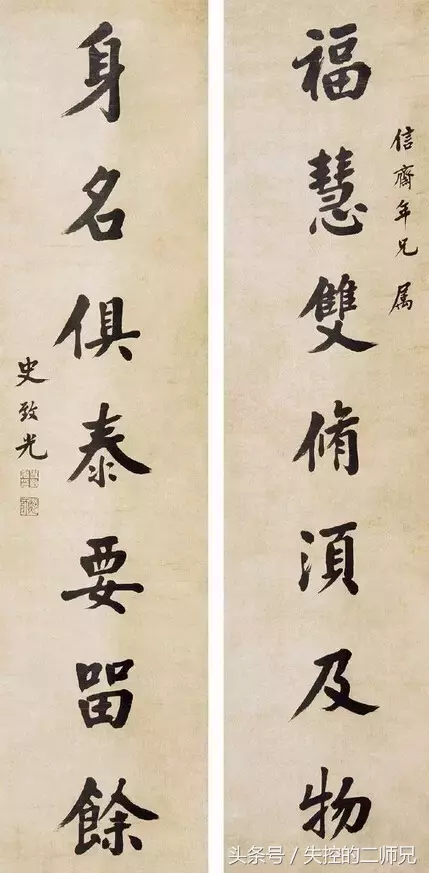 信齋年兄属
福慧雙脩湏及物
身名俱泰要留餘
史致光
头条号/失控的二师兄